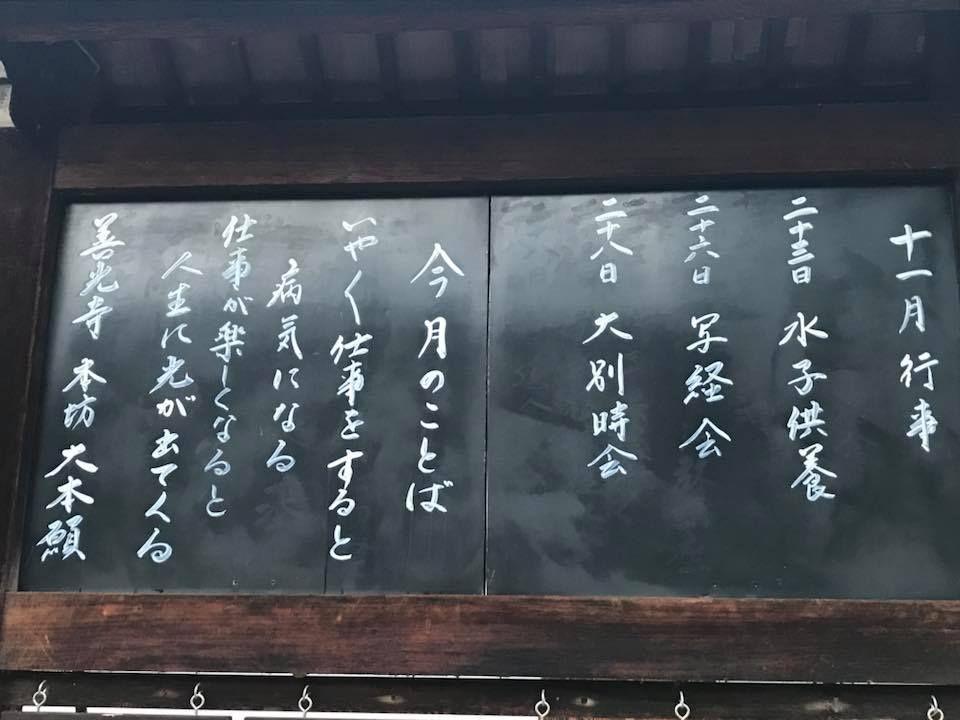 十一月行事
二十三日 水子供養
二十六日 写経会
二十八日 大別時会
今月のことば
いやく仕事をすると
病気になる
仕事が楽しくなると
人生に光が出てくる
善光寺 本坊 大本願